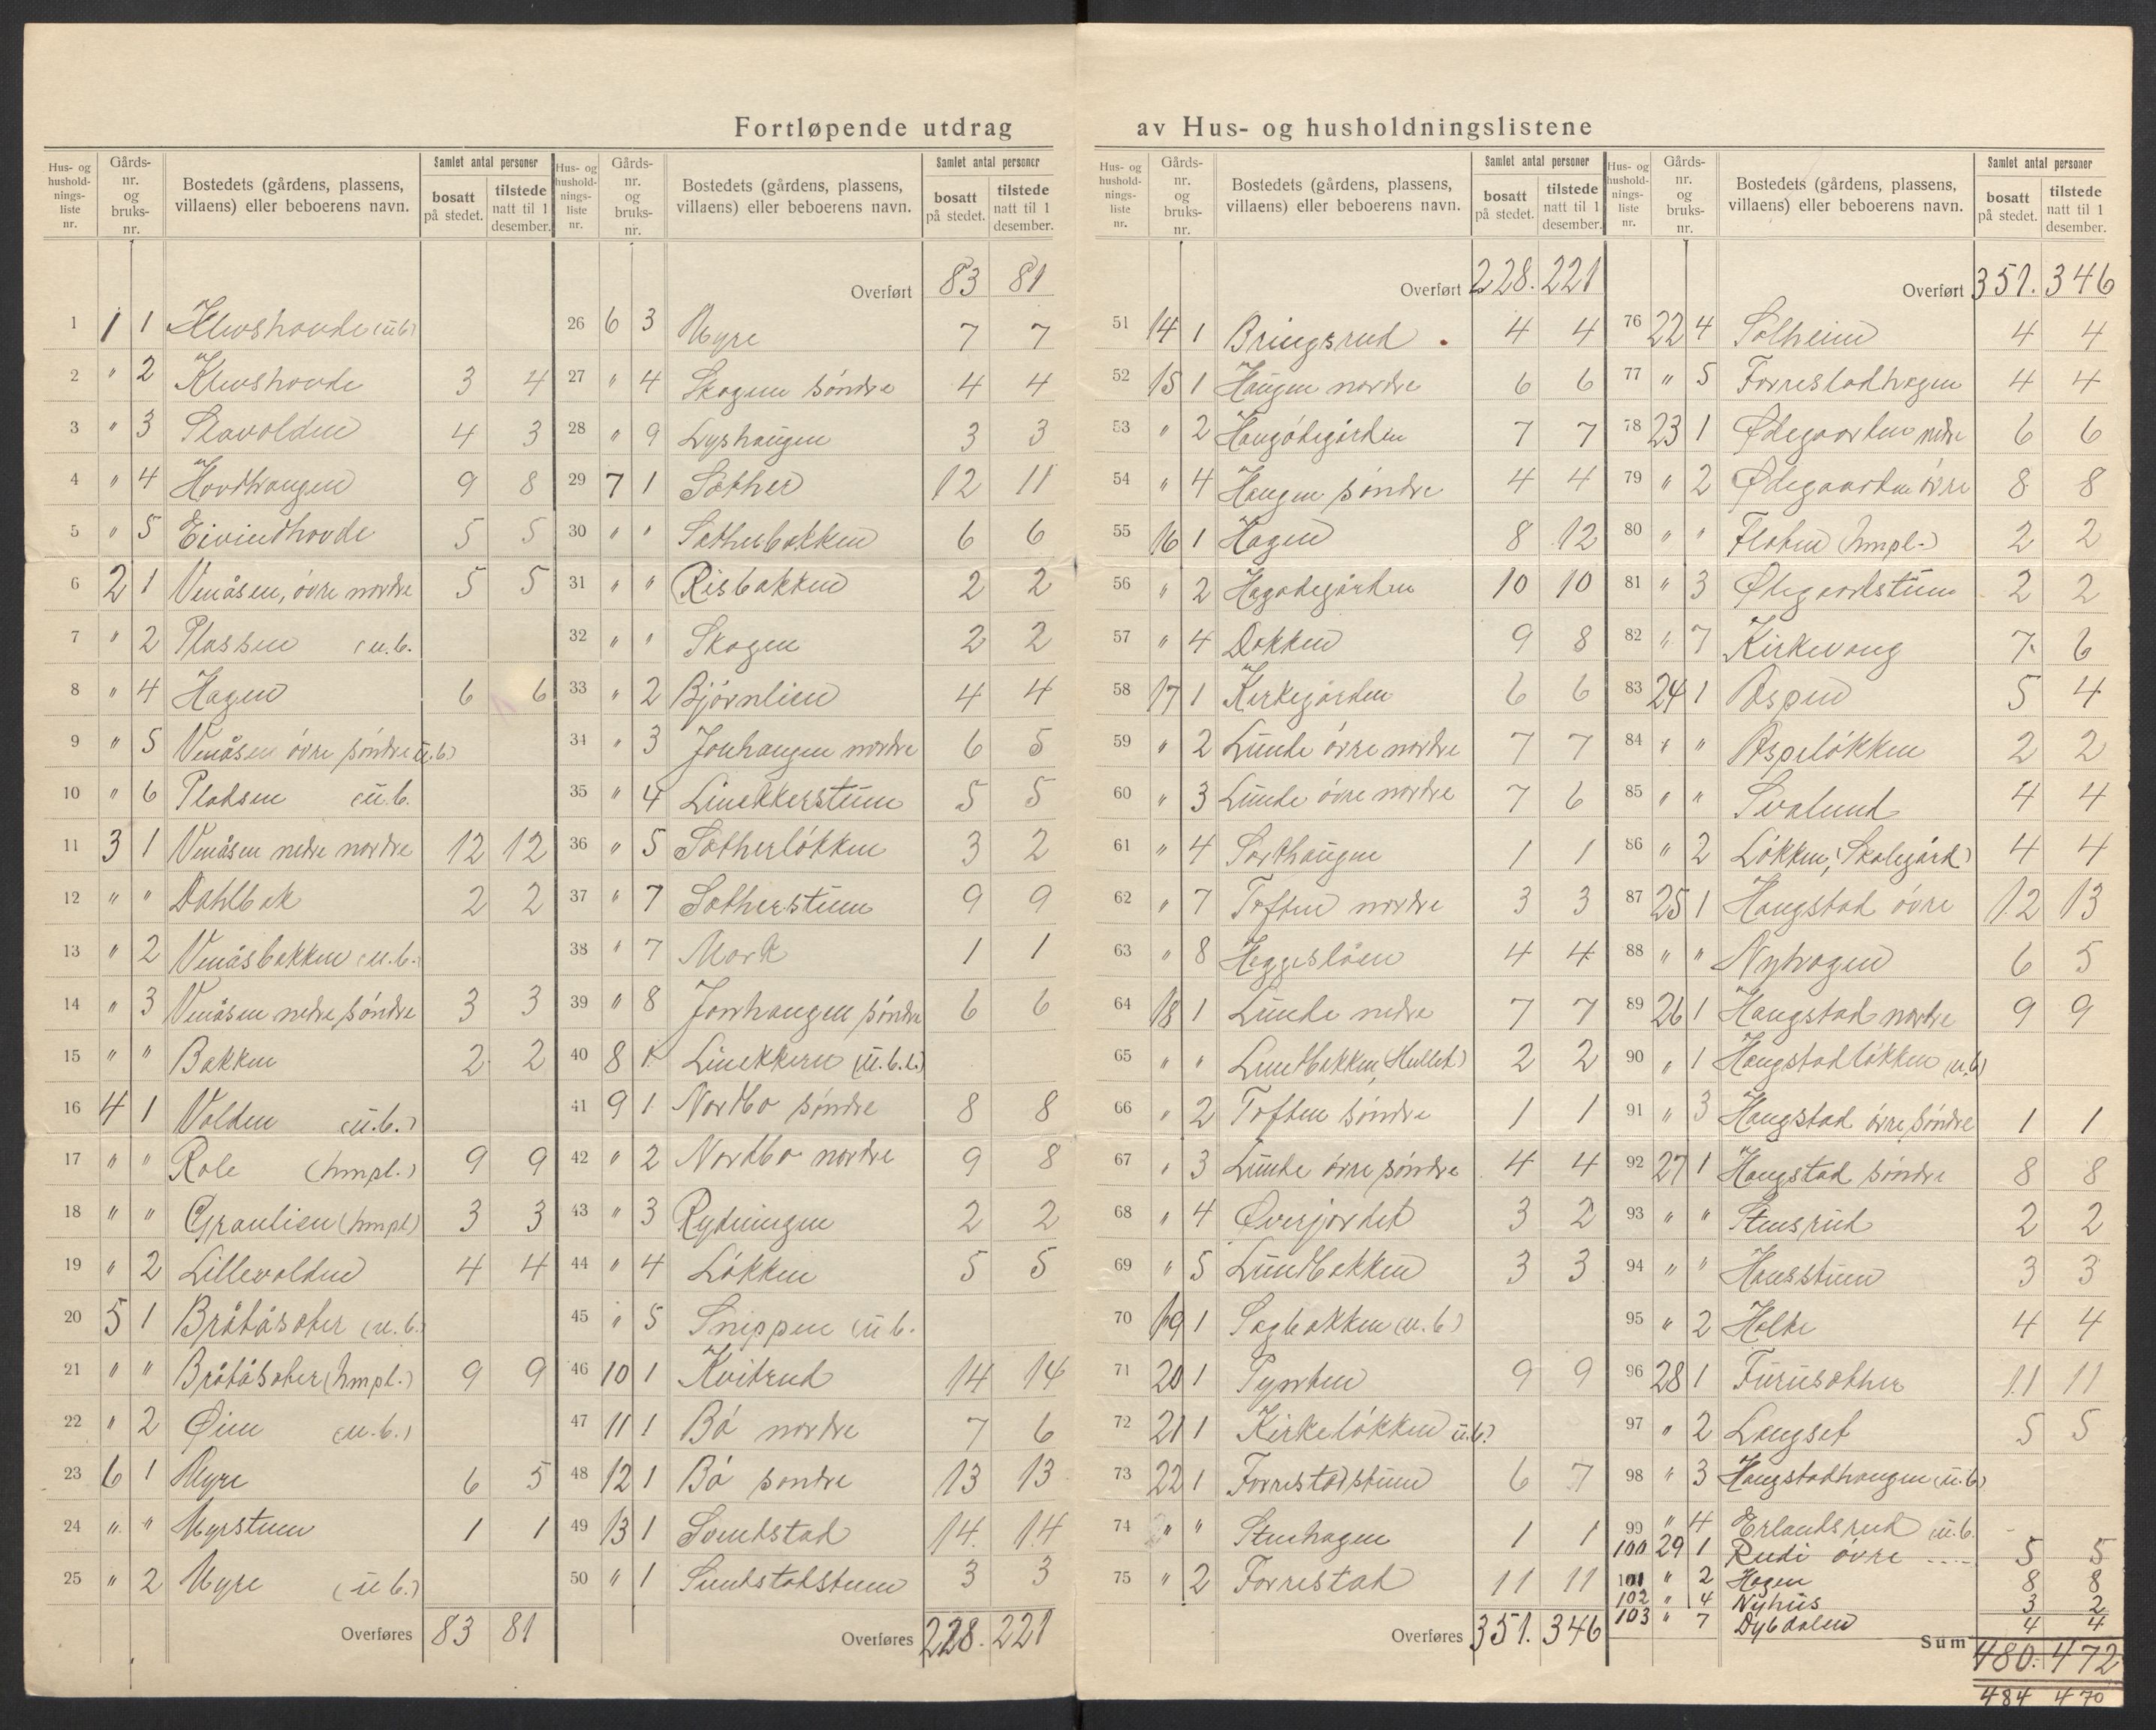 Fortløpende utdrag av Hus- og husholdningslistene
Hus- og husholdningsliste nr. Gårdsnr. og bruksnr. Bostedets (gårdens, plassens, villaens) eller beboerens navn. Samlet antal personer bosatt på stedet. tilstede natt til 1 desember.
1 1 1 Klevshovde (u.b)
2 " 2 Klevshovde 3 4
3 " 3 4 3
4 " 4 Hovdhaugen 9 8
5 " 5 Eivindhovde 5 5
6 2 1 Venåsen, övre nordre 5 5
7 " 2 Plassen (u.b.
8 " 4 Hagen 6 6
9 " 5 Venåsen övre söndre u.b)
10 " 6 Pladsen u.b.
11 3 1 Venåsen nedre nordre 12 12
12 " " Dahlbak 2 2
13 " 2 Venåsbakken (u.b.)
14 " 3 Venåsen nedre söndre 3 3
15 " " Bakken 2 2
16 4 1 Volden (u.b.)
17 " " Role (hmpl.) 9 9
18 " " Granlien (hmpl) 3 3
19 " 2 Lillevolden 4 4
20 5 1 Bråtåsæter (u.b.)
21 " " Bråtåsæter (hmpl.) 9 9
22 " 2 Øien (u.b.)
23 6 1 Myre 6 5
24 " " Myrstuen 1 1
25 " 2 Myre (u b.)
Overføres 83 81
Hus- og husholdningsliste nr. Gårdsnr. og bruksnr. Bostedets (gårdens, plassens, villaens) eller beboerens navn. Samlet antal personer bosatt på stedet. tilstede natt til 1 desember.
Overført 83 81
26 6 3 Myre 7 7
27 " 4 Skogen söndre 4 4
28 " 9 Lyshaugen 3 3
29 7 1 Sæther 12 11
30 " " Sætherbakken 6 6
31 " " Risbakken 2 2
32 " " Skogen 2 2
33 " 2 Bjørnlien 4 4
34 " 3 Jonhaugen nordre 6 5
35 " 4 Linekkerstuen 5 5
36 " 5 Sætherlökken 3 2
37 " 7 Sætherstuen 9 9
38 " 7 Mork 1 1
39 " 8 Jonhaugen söndre 6 6
40 8 1 Linekkern (u.b.)
41 9 1 Nordbo söndre 8 8
42 " 2 Nordbo nordre 9 8
43 " 3 Rydningen 2 2
44 " 4 Lökken 5 5
45 " 5 Snippen u b.
46 10 1 Kvitrud 14 14
47 11 1 Bö nordre 7 6
48 12 1 Bö söndre 13 13
49 13 1 Svendstad 14. 14
50 " 1 Svendstadstuen 3 3
Overføres 228. 221
Hus- og husholdningsliste nr. Gårdsnr. og bruksnr. Bostedets (gårdens, plassens, villaens) eller beboerens navn. Samlet antal personer bosatt på stedet. tilstede natt til 1 desember.
Overført 228. 221
51 14 1 Bringsrud 4 4
52 15 1 Haugen nordre 6 6
53 " 2 Haugödegården 7 7
54 " 4 Haugen söndre 4 4
55 16 1 Hagen 8 12
56 " 2 Hagödegården 10 10
57 " 4 Dokken 9 8
58 17 1 Kirkegården 6 6
59 " 2 Lunde övre nordre 7 7
60 " 3 Lunde övre nordre 7 6
61 " 4 Sorthaugen 1 1
62 " 7 Toften nordre 3 3
63 " 8 Heggeslöen 4 4
64 18 1 Lunde nedre 7 7
65 " " Lundbakken (Hullet) 2 2
66 " 2 Toften söndre 1 1
67 " 3 Lunde övre söndre 4 4
68 " 4 Øverjordet 3 2
69 " 5 Lundbakken 3 3
70 19 1 Sagbakken (u.b)
71 20 1 Pynten 9 9
72 21 1 Kirkelökken u.b.)
73 22 1 Forrestadstuen 6 7
74 " " Stenhagen 1 1
75 " 2 Forrestad 11 11
Overføres 351. 346
Hus- og husholdningsliste nr. Gårdsnr. og bruksnr. Bostedets (gårdens, plassens, villaens) eller beboerens navn. Samlet antal personer bosatt på stedet. tilstede natt til 1 desember.
Overført 351. 346
76 22 4 Solheim 4 4
77 " 5 Forrestadhagen 4 4
78 23 1 Ødegaarden nedre 6 6
79 " 2 Ødegaarden övre 8 8
80 " " Floten (hmpl.) 2 2
81 " 3 Ødegaardstuen 2 2
82 " 7 Kirkevang 7. 6
83 24 1 Aspen 5 4
84 " " Aspelökken 2 2
85 " " Svalund 4 4
86 " 2 Løkken, (Skolegård) 4 4
87 25 1 Haugstad övre 12 13
88 " " Nyhagen 6 5
89 26 1 Haugstad nordre 9 9
90 " 1 Haugstadlökken (u.b)
91 " 3 Haugstad övre söndre 1 1
92 27 1 Haugstad söndre 8 8
93 " " Stensrud 2 2
94 " " Hansstuen 3 3
95 " 2 Holte 4 4
96 28 1 Furusæther 11 11
97 " 2 Langset 5 5
98 " 3 Haugstadhaugen (u.b)
99 " 4 Erlandsrud u.b.
100 29 1 Rudi övre 5 5
101 " 2 Hagen 8 8
102 " 4 Nyhus 3 2
103 " 7 Dybdalen 4 4
Sum 480. 472
484 470